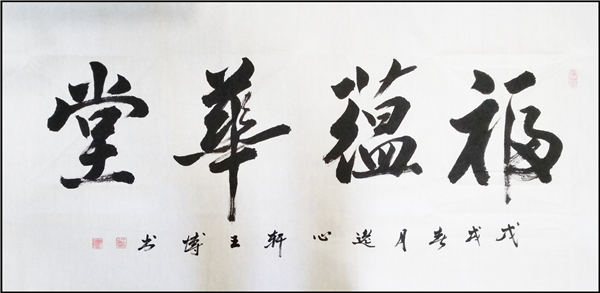 福蘊華堂
戊戌春月逸心轩王博书